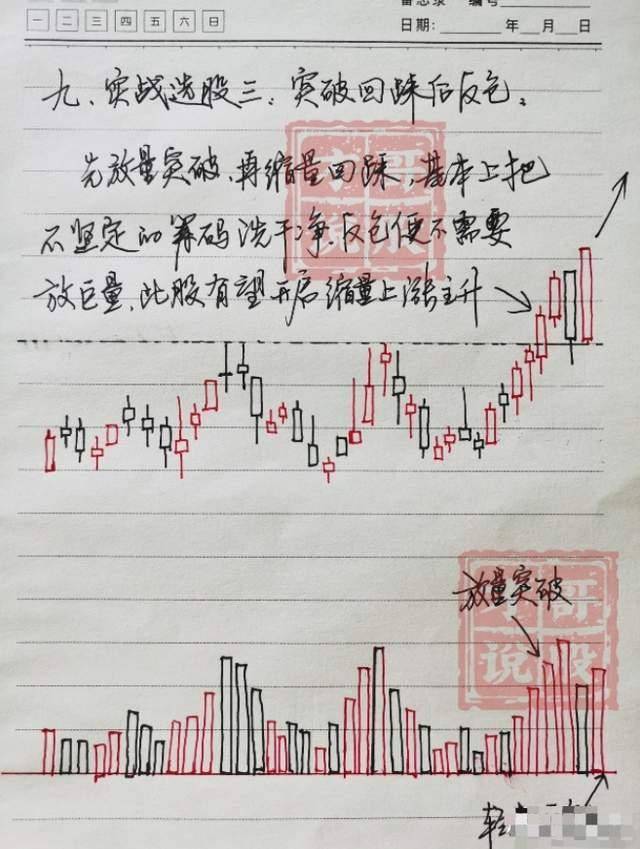 备忘录 编号
一 二 三 四 五 六 日
日期: 年 月 日
九、实战选股三:突破回踩后反包。
先放量突破,再缩量回踩,基本上把
不坚定的筹码洗干净,反包便不需要
放巨量,此股有望开启缩量上涨主升
放量突破
哥
说股
轻